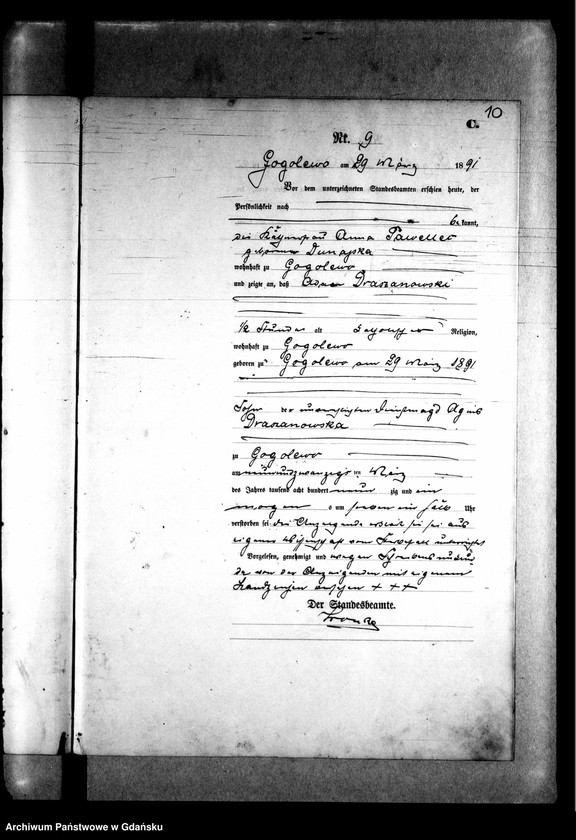 10
C.
Nr. 9
Gogolewo am 29 März 1891
Vor dem unterzeichneten Standesbeamten erschien heute, der
Persönlichkeit nach
kannt,
die Anna Pawelle
geborene Dunajska
wohnhaft zu Gogolewo
und zeigte an, daß Adam Draszanowski
1/2 Stunde alt Religion,
wohnhaft zu Gogolewo
geboren zu Gogolewo am 29 März 1891
Sohn der unverehelichten Dienstmagd
Draszanowska
zu Gogolewo
am neunundzwanzigsten März
des Jahres tausend acht hundert neunzig und ein
morgens um sieben ein halb Uhr
verstorben sei. Die Anzeigende erklärt sie sei aus
eigener Wissenschaft vom unterrichtet
Vorgelesen, genehmigt und wegen Schreibensunkun-
de von der Anzeigenden mit eigenem
Handzeichen versehen + + +
Der Standesbeamte.
Archiwum Państwowe w Gdańsku